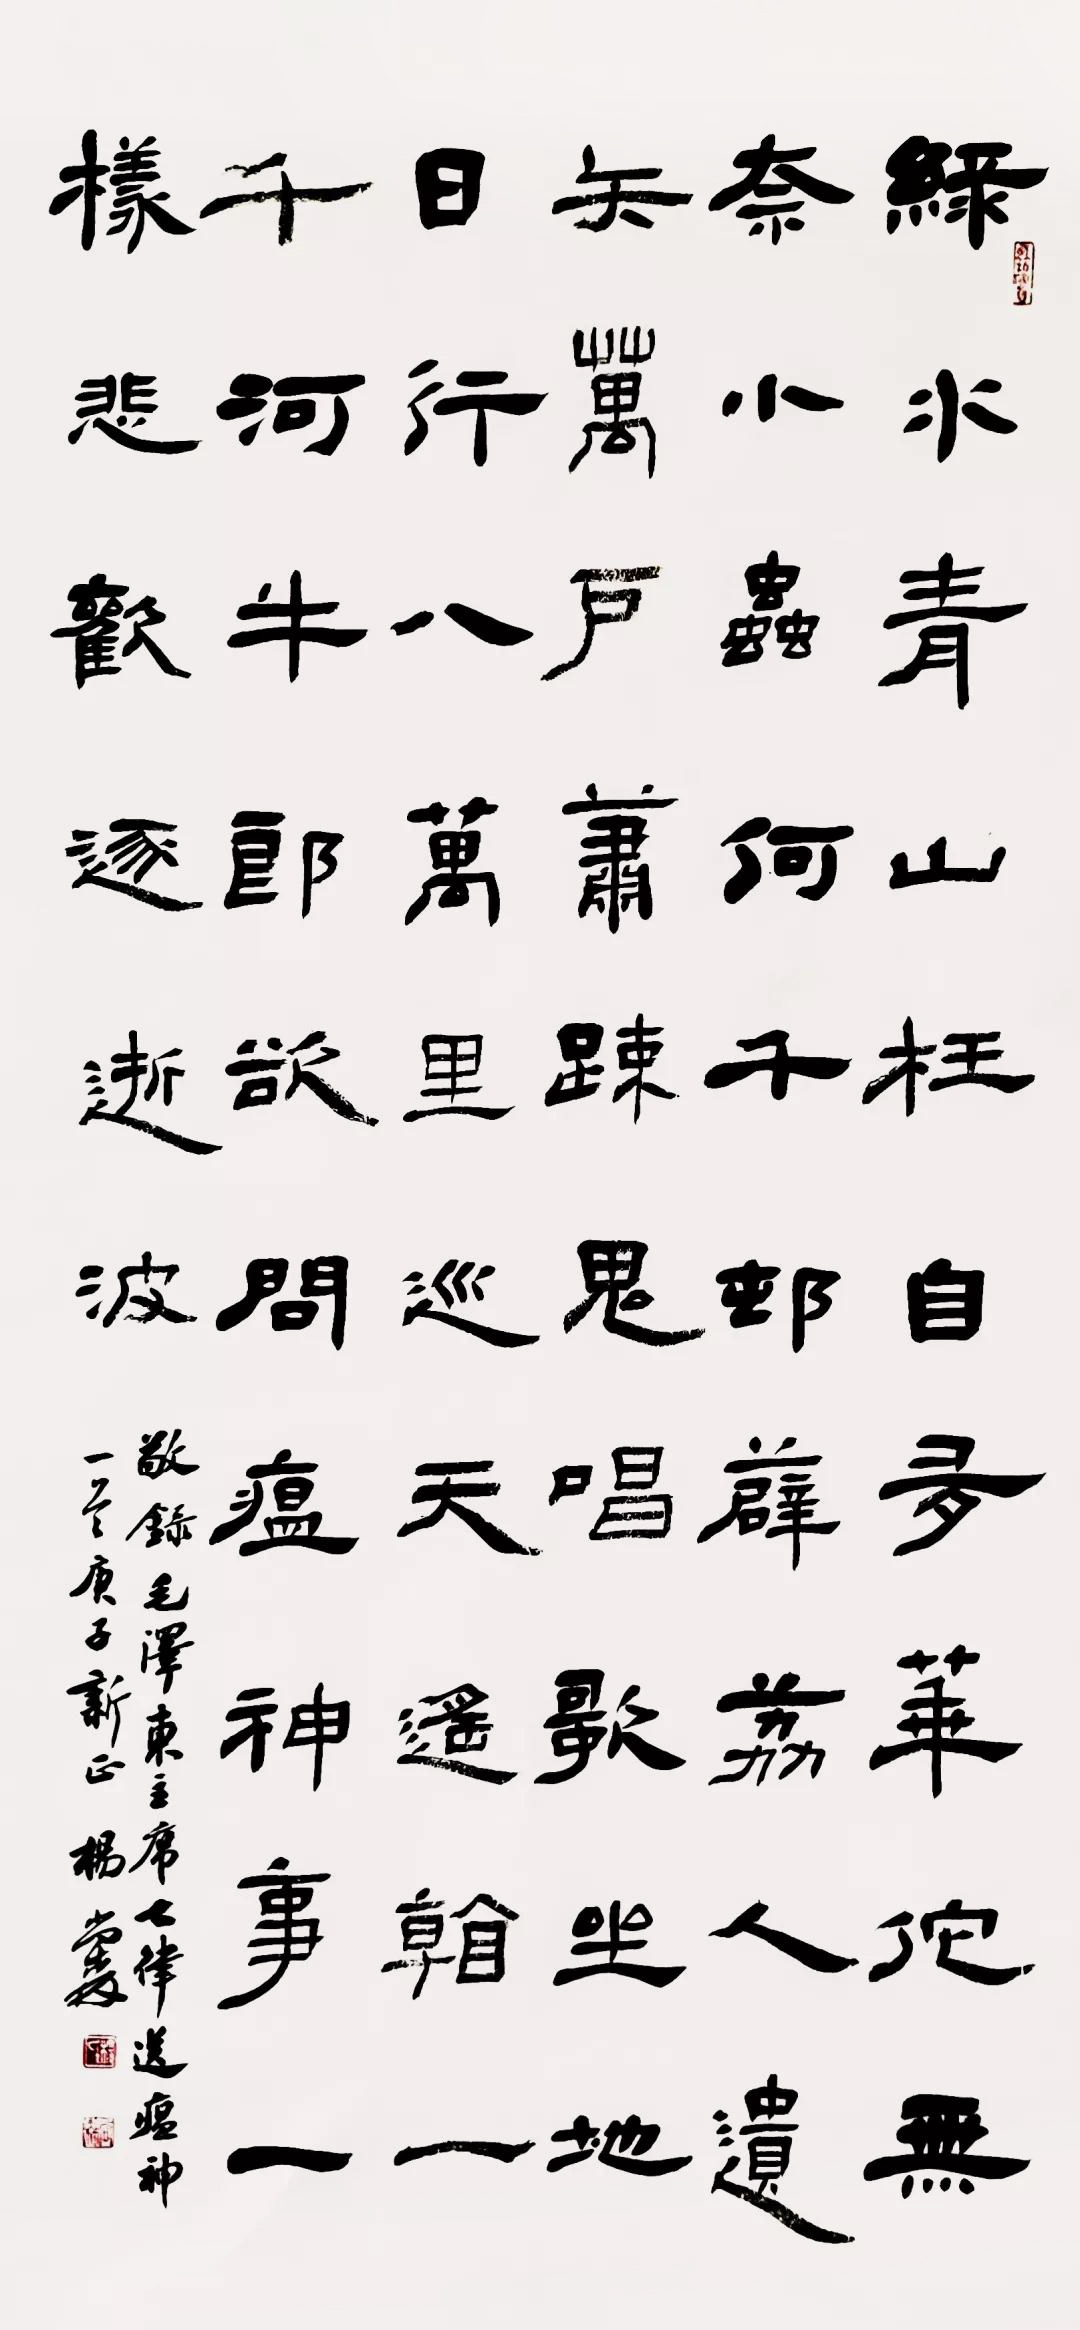 綠水青山枉自多華佗無
奈小蟲何千邨薜荔人遺
矢萬戶蕭踈鬼唱歌坐地
日行八萬里巡天遙看一
千河牛郎欲問瘟神事一
樣悲歡逐逝波
敬錄毛澤東主席七律送瘟神
庚子新正 楊